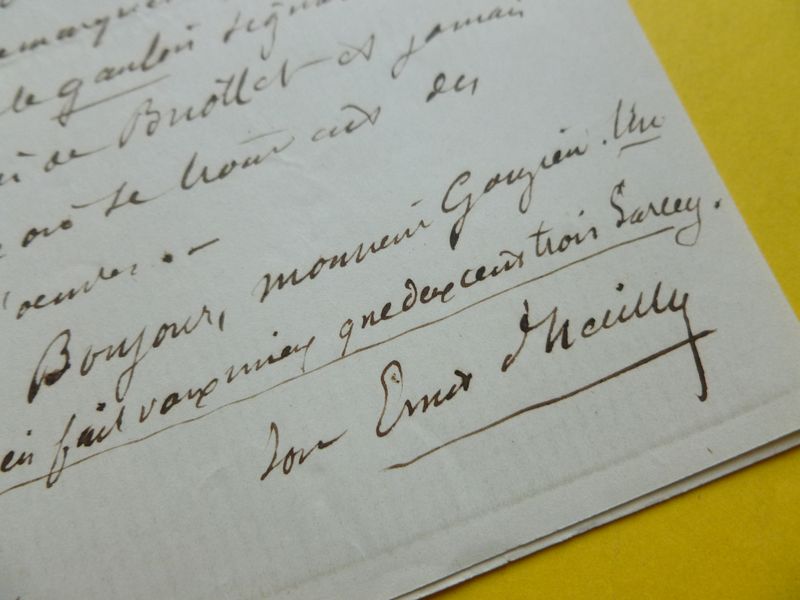 le gaulois signa
de Buollet et jamais
où se trouv des
Bonjour, monsieur Gouzien. Un
fait vaux mieux que deux cents trois Sarcey.
ton Ernest d'hervilly